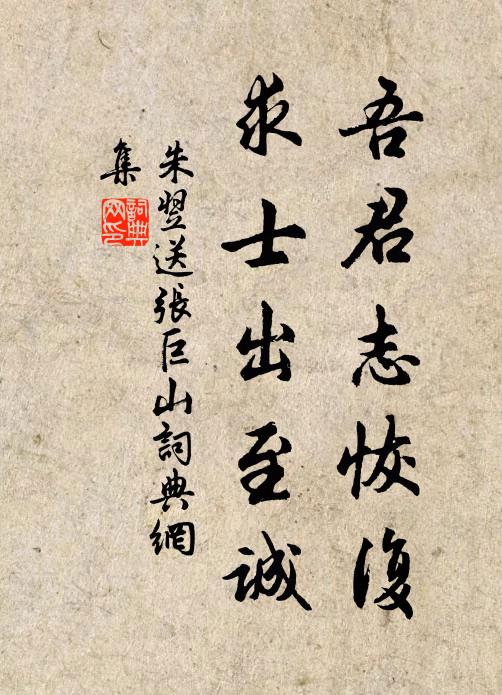 吾君志恢復
求士出至誠
朱翌送張巨山詞典網
集
詞典
网印